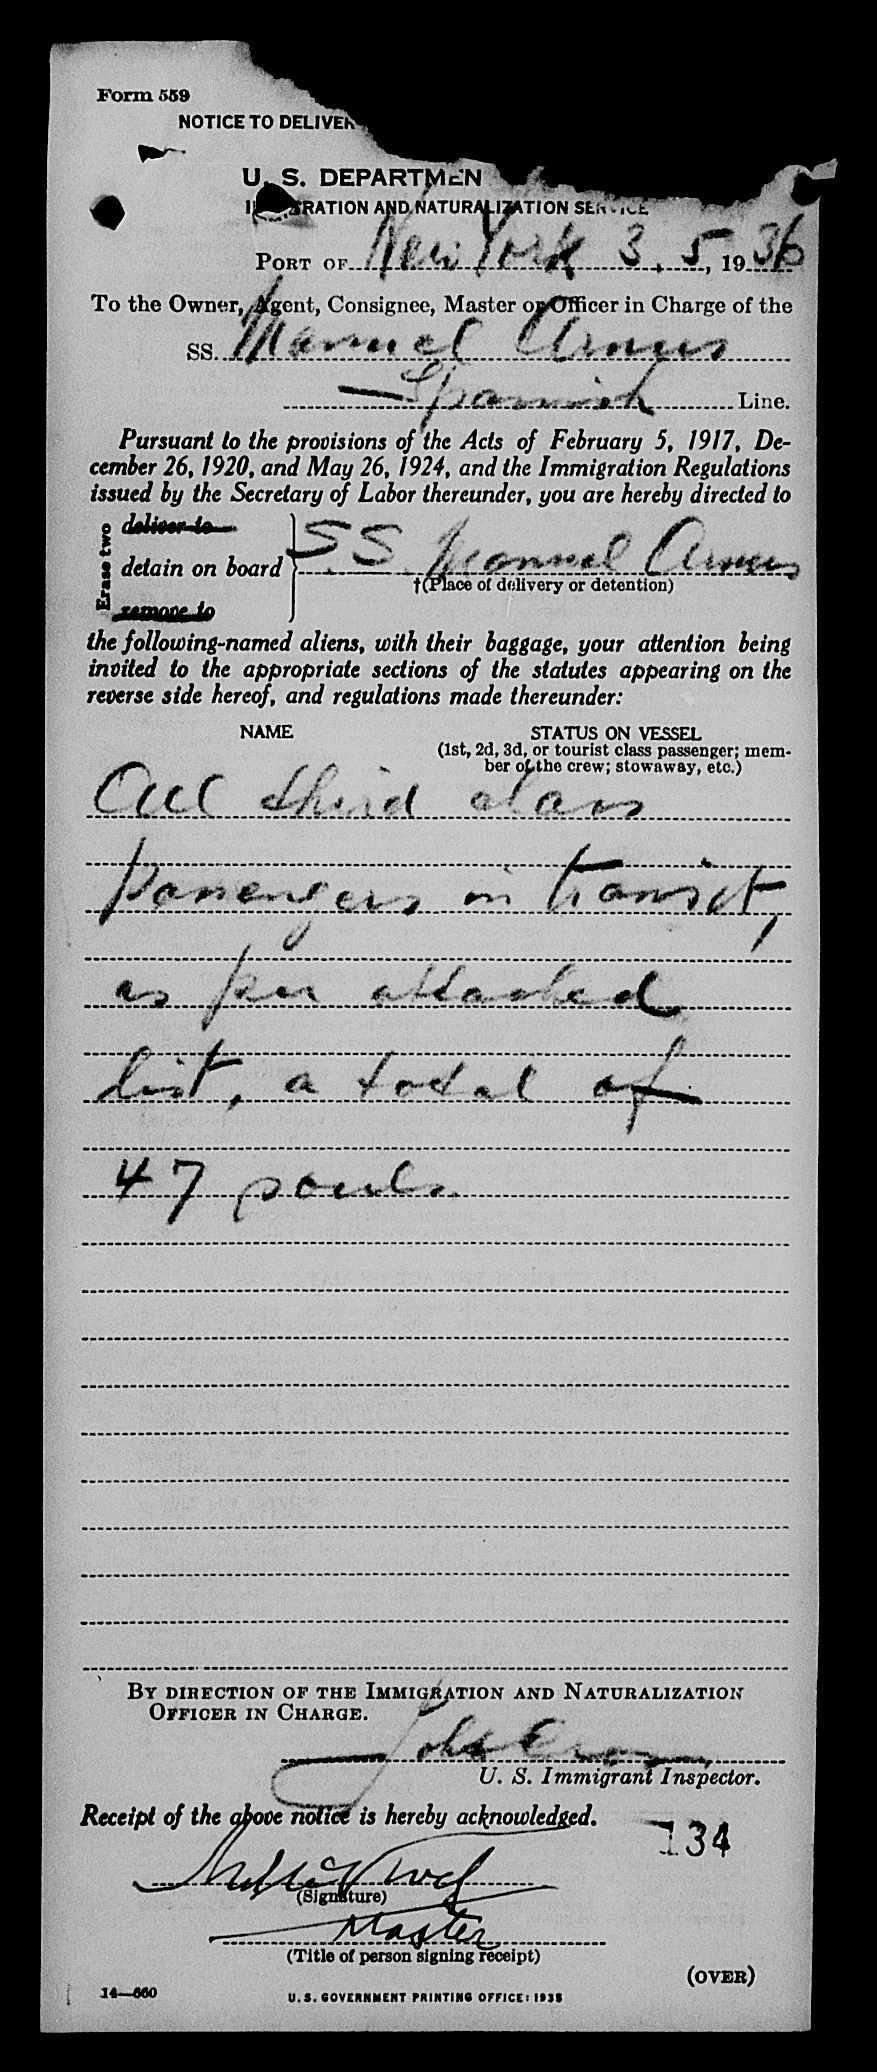 Form 559
NOTICE TO DELIVER
U. S. DEPARTMEN
IMMIGRATION AND NATURALIZATION SERVICE
PORT OF New York 3. 5, 1936
To the Owner, Agent, Consignee, Master or Officer in Charge of the
SS. Manuel Arnus
Spanish Line.
Pursuant to the provisions of the Acts of February 5, 1917, De-
cember 26, 1920, and May 26, 1924, and the Immigration Regulations
issued by the Secretary of Labor thereunder, you are hereby directed to
Erase two
deliver to
detain on board
remove to
SS Manuel Arnus
†(Place of delivery or detention)
the following-named aliens, with their baggage, your attention being
invited to the appropriate sections of the statutes appearing on the
reverse side hereof, and regulations made thereunder:
NAME STATUS ON VESSEL
(1st, 2d, 3d, or tourist class passenger; mem-
ber of the crew; stowaway, etc.)
All third class
passengers in transit,
as per attached
list, a total of
47 souls.
BY DIRECTION OF THE IMMIGRATION AND NATURALIZATION
OFFICER IN CHARGE.
U. S. Immigrant Inspector.
Receipt of the above notice is hereby acknowledged.
134
(Signature)
Master
(Title of person signing receipt)
(OVER)
14—660
U. S. GOVERNMENT PRINTING OFFICE: 1935